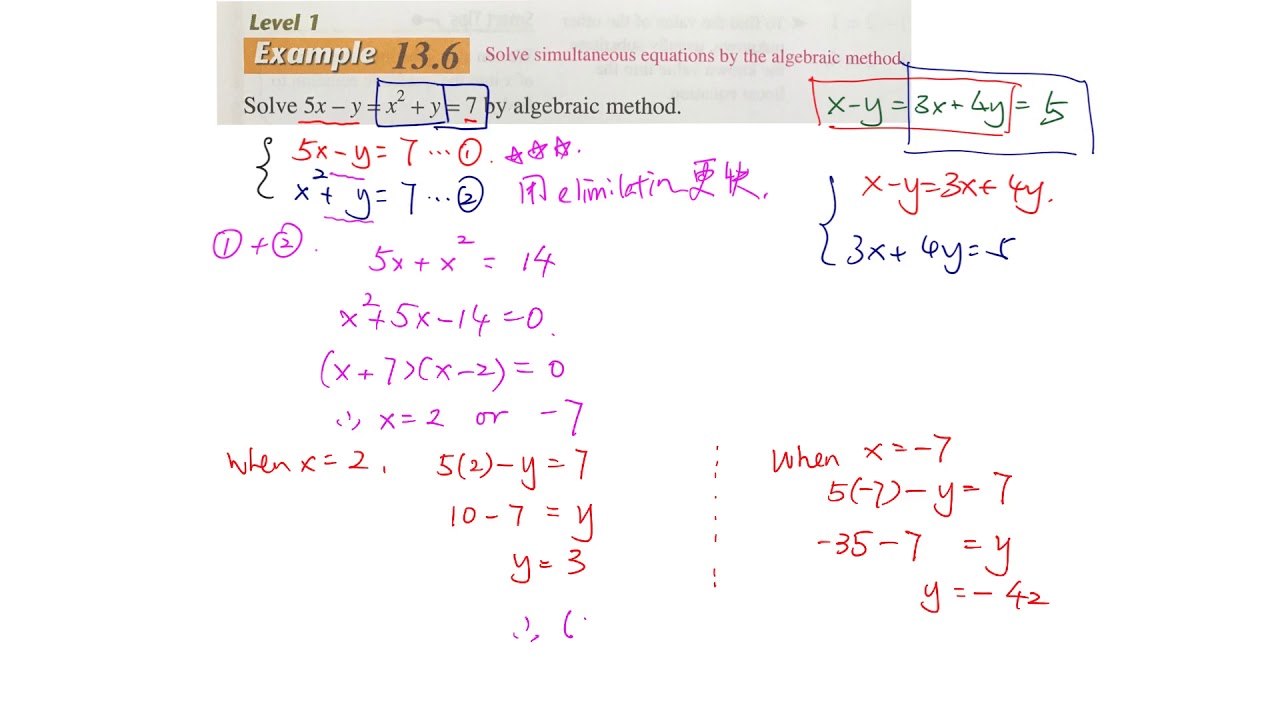 Level 1
Example 13.6 Solve simultaneous equations by the algebraic method
Solve 5x – y = x² + y = 7 by algebraic method.
x - y = 3x + 4y = 5
{ 5x - y = 7 ... ①
x² + y = 7 ... ②
☆☆☆.
用 elimilatin 更快.
{ x - y = 3x + 4y.
3x + 4y = 5
① + ②.
5x + x² = 14
x² + 5x - 14 = 0.
(x + 7)(x - 2) = 0
∴ x = 2 or -7
When x = 2, 5(2) - y = 7
10 - 7 = y
y = 3
∴ (
When x = -7
5(-7) - y = 7
-35 - 7 = y
y = - 42